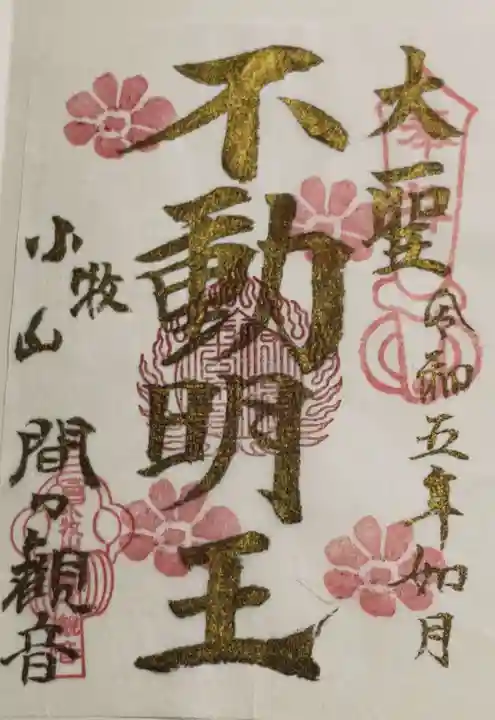 大聖
令和五年如月
不動明王
小牧山
間々觀音